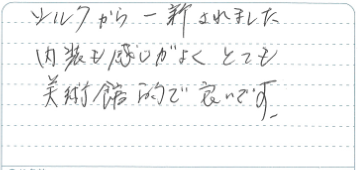 シルクから一新されました
内装も感じがよくとても
美術館的で良いです